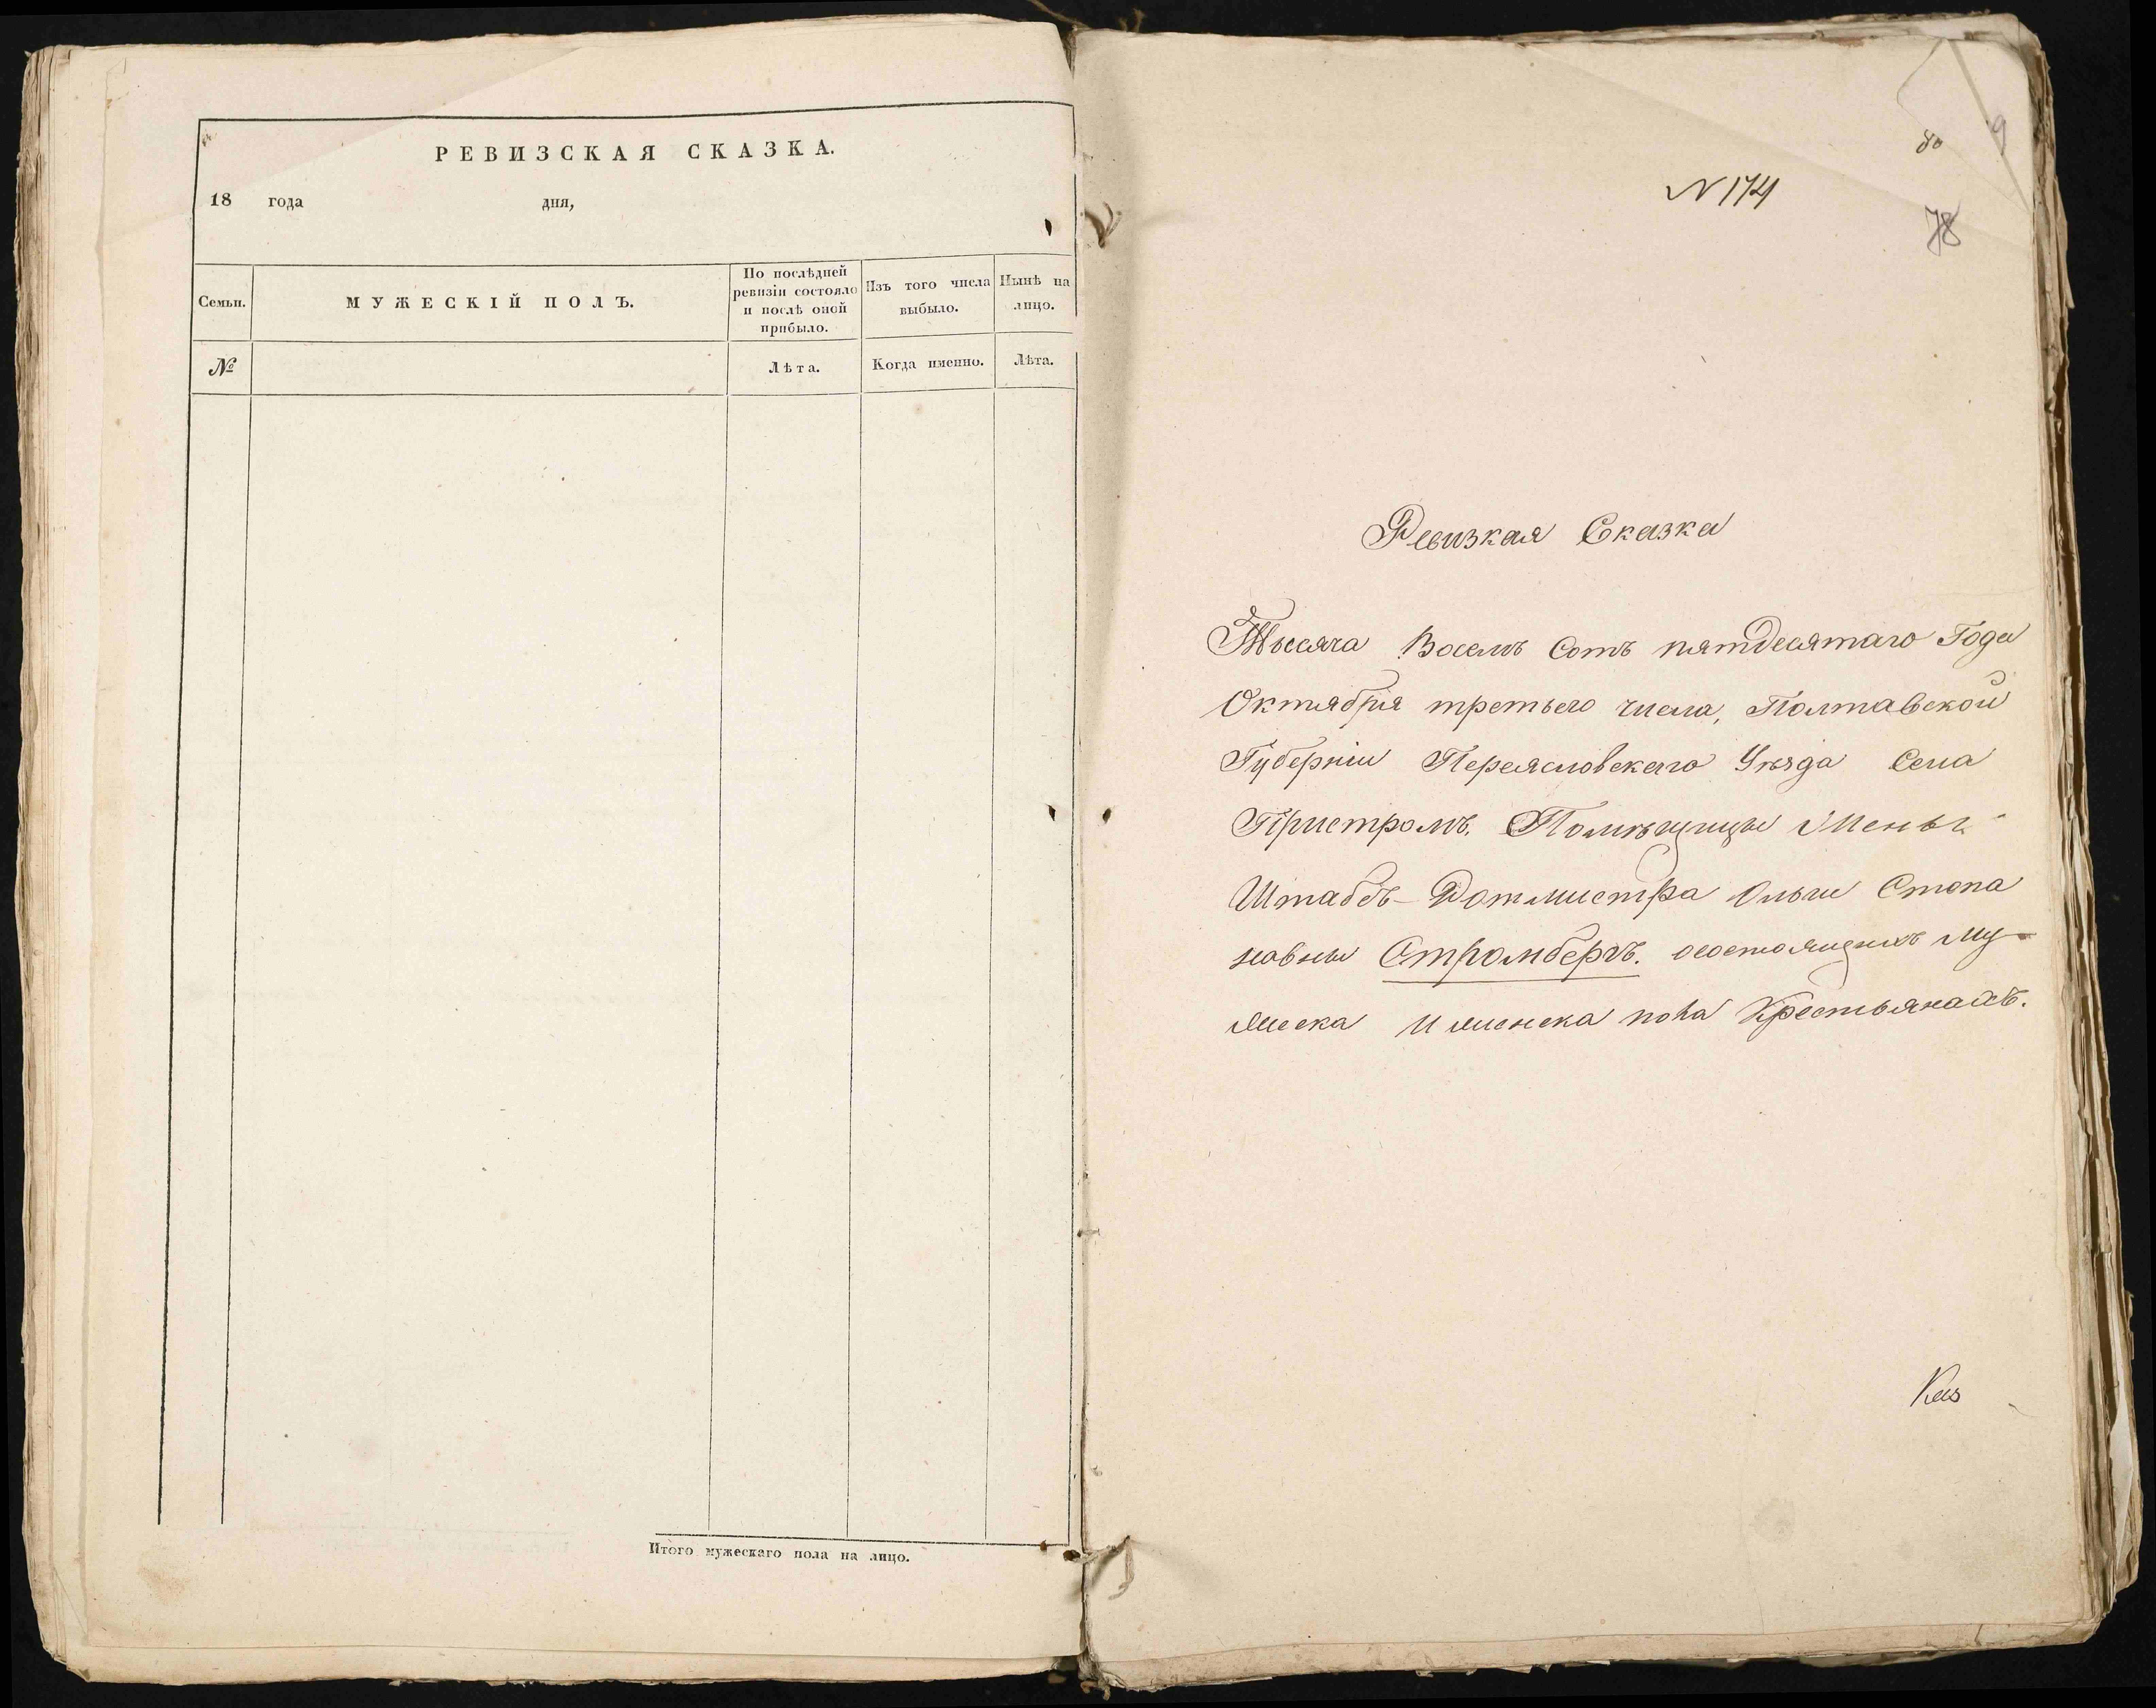 РЕВИЗСКАЯ СКАЗКА.
18 года дня,
Семьи.
МУЖЕСКІЙ ПОЛЪ.
По послѣдней ревизіи состояло и послѣ оной прибыло.
Изъ того числа выбыло.
Нынѣ на лицо.
№
Лѣта.
Когда именно.
Лѣта.
Итого мужескаго пола на лицо.
80 9
N 174
78
Ревизкая Сказка
Тысяча Восемъ Сотъ пятдесятаго Года
Октября третьего числа, Полтавской
Губерніи Переясловскаго Уѣзда Села
Пристромъ. Помѣщицы Жены
Штабсъ-Ротмистра Ольги Степа
новны Стромбергъ. осостоящихъ му-
жеска и женска пола Крестьянахъ.